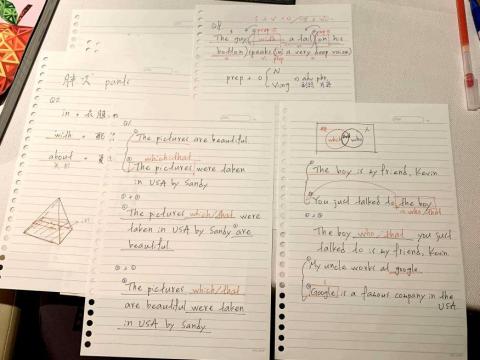 Q4
The guy with a tail on his
button speaks in a very deep voice
prep
prep + O
N
Ving
adv ph.
pants
Q2
in +
with +
about +
Q1
The pictures are beautiful.
which/that
The pictures were taken
in USA by Sandy
① + ②
The pictures which/that were
taken in USA by Sandy are
beautiful.
The pictures which/that
are beautiful were taken
in USA by Sandy
which
who
人
The boy is my friend, Kevin
You just talked to the boy
who/that
① + ②
The boy who/that you just
talked to is my friend, Kevin
My uncle works at google.
Google is a famous company in the
USA